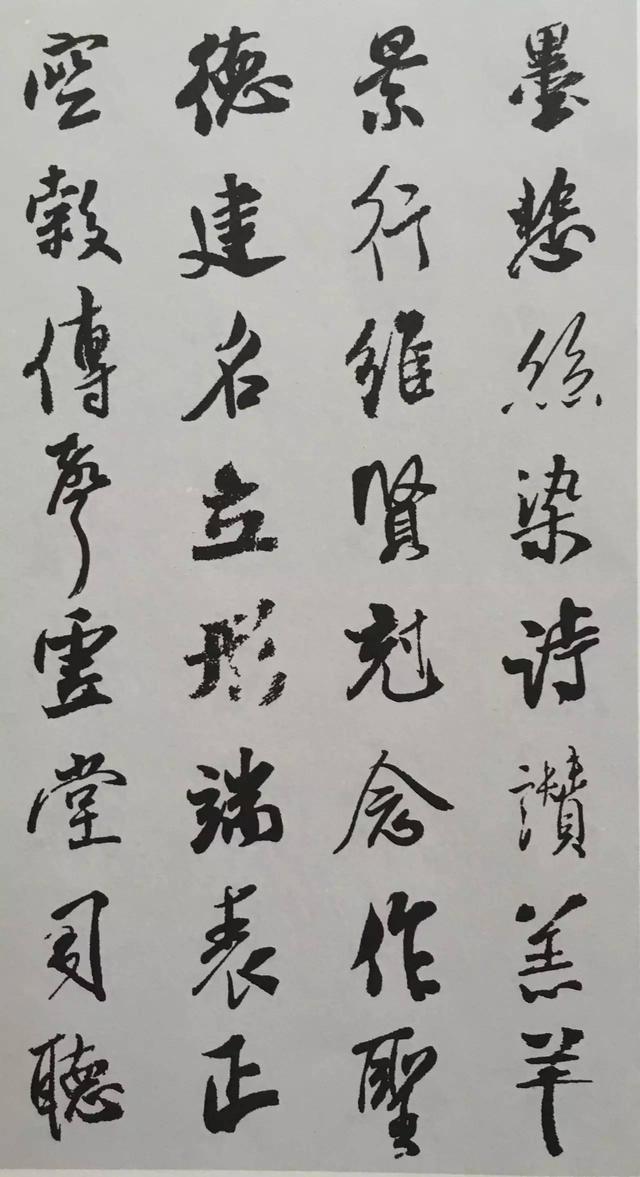 墨悲絲染詩讚羔羊
景行維賢剋念作聖
德建名立形端表正
空穀傳聲虛堂習聽